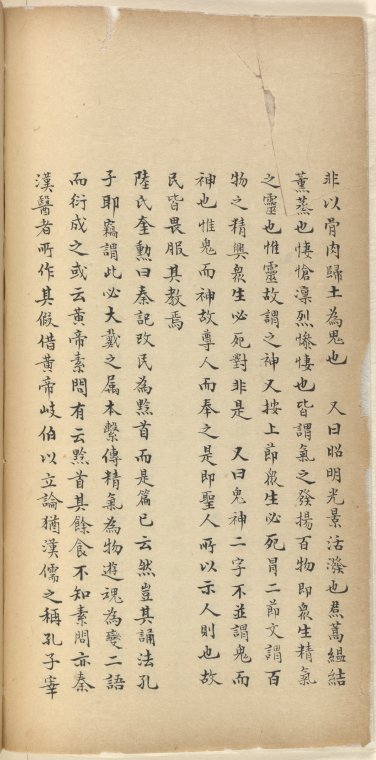 非以骨肉歸土為鬼也　又曰昭明光景活潑也焄蒿緼結
薰蒸也悽愴凛烈慘悽也皆謂氣之發揚百物即衆生精氣
之靈也惟靈故謂之神又按上節衆生必死冒二節文謂百
物之精與衆生必死對非是　又曰鬼神二字不並謂鬼而
神也惟鬼而神故尊人而奉之是即聖人所以示人則也故
民皆畏服其教焉
陸氏奎勳曰秦記改民為黔首而是篇已云然豈其誦法孔
子耶竊謂此必大戴之属本繫傳精氣為物遊魂為變二語
而衍成之或云黄帝素問有云黔首其餘食不知素問亦秦
漢醫者所作其假借黄帝岐伯以立論猶漢儒之稱孔子宰